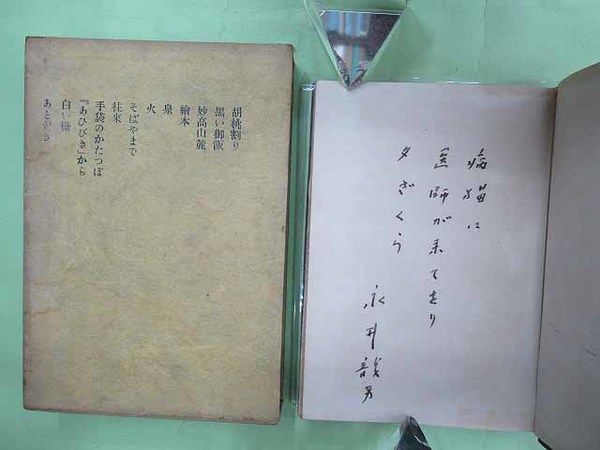 胡桃割り
黒い御飯
妙高山麓
繪本
泉
火
そばやまで
往來
手袋のかたつぽ
『あひびき』から
白い柵
あとがき
病猫に
医師が来てをり
夕ざくら
永井龍男